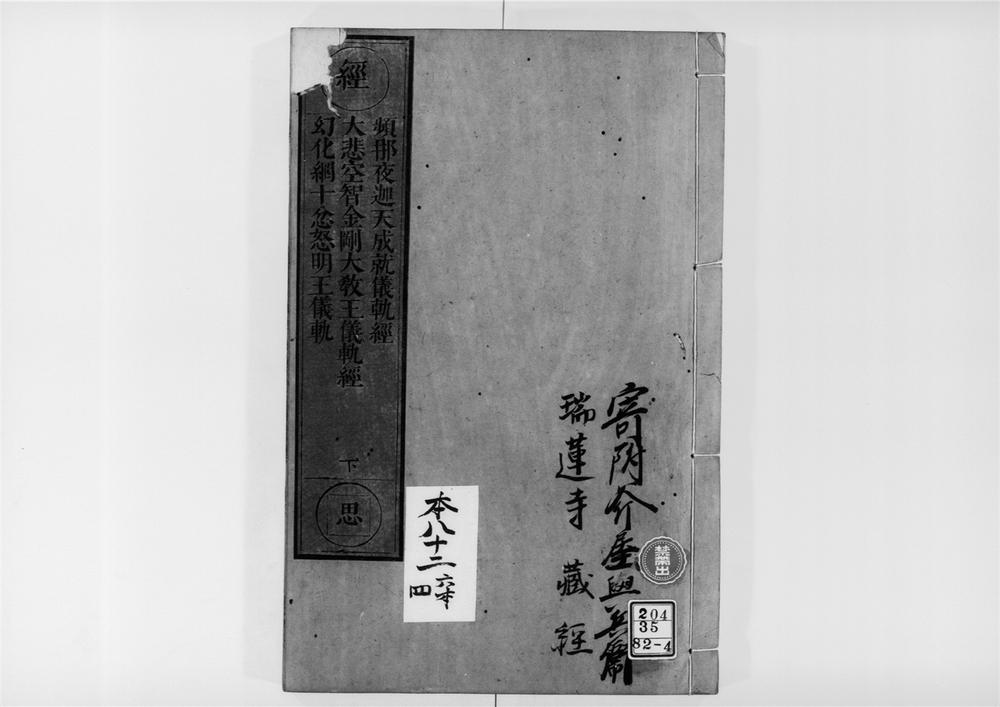 寄附介屋與兵衛
瑞蓮寺 藏經
禁帶出
204
35
82-4
本八十二
六本
四
經
頻那夜迦天成就儀軌經
大悲空智金剛大教王儀軌經
幻化網十忿怒明王儀軌
下
思